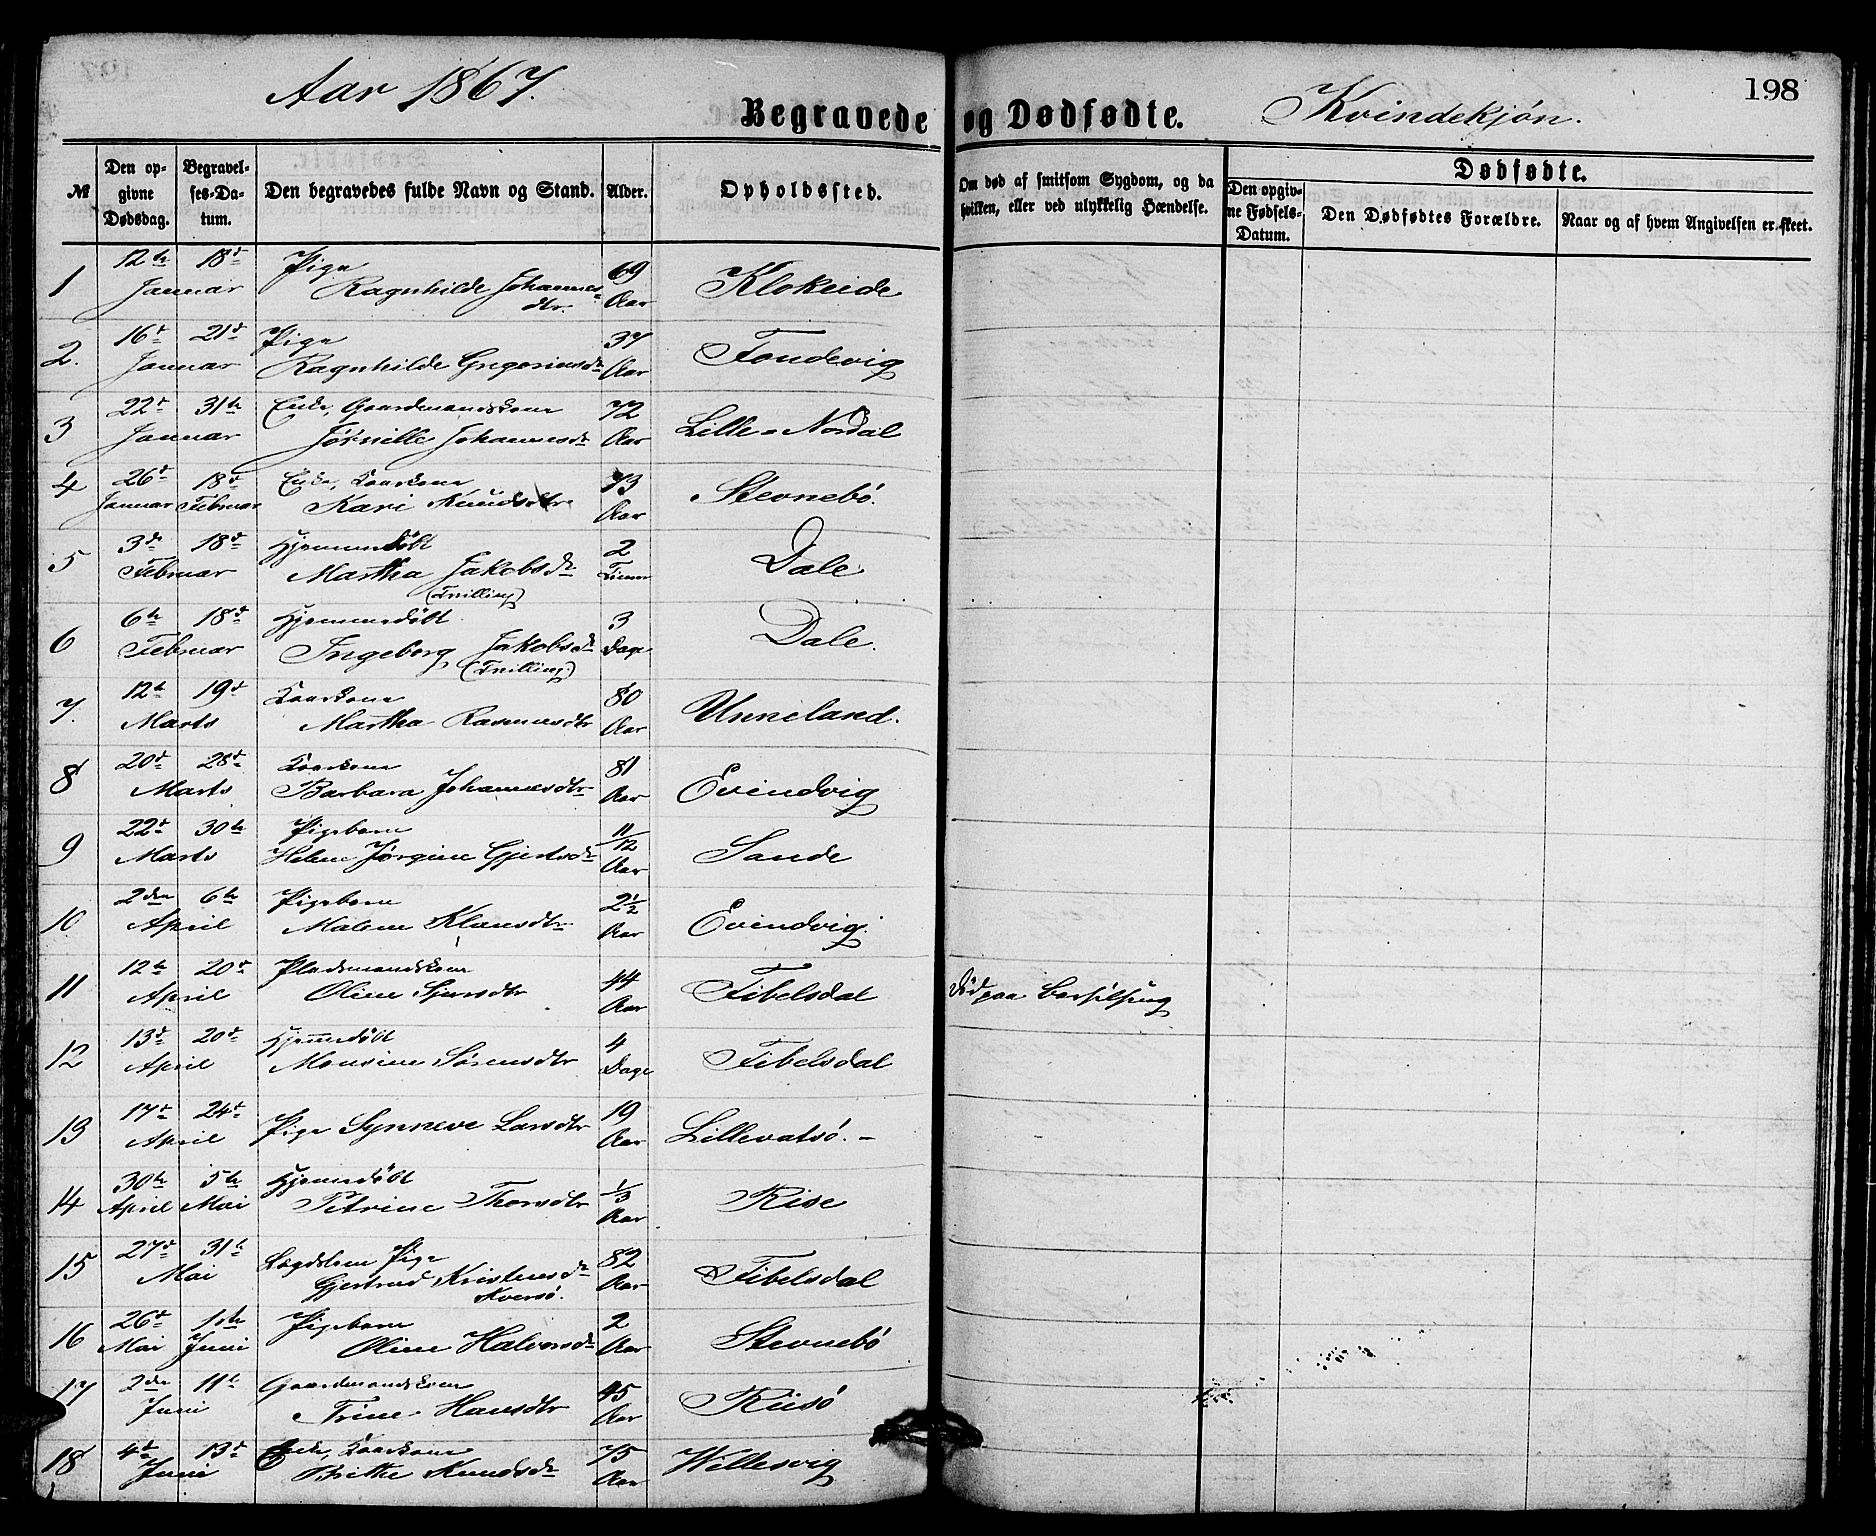 Aar 1867.
Begravede og Dødfødte.
Kvindekjøn.
198
№
Den opgivne Dødsdag.
Begravelses-Datum.
Den begravedes fulde Navn og Stand.
Alder.
Opholdssted.
Om død af smitsom Sygdom, og da hvilken, eller ved ulykkelig Hændelse.
Dødfødte.
Den opgivne Fødsels-Datum.
Den Dødfødtes Forældre.
Naar og af hvem Angivelsen er skeet.
1 12te Januar 18de Pige Ragnhilde Johannesdtr. 69 Aar Klokeide
2. 16de Januar 21de Pige Ragnhilde 37 Aar Tondevig
3 22de Januar 31te Enke, Gaardmandskone Johannesdr 72 Aar Lille-Nordal
4 26de Januar 18de Februar Enke, Kaarkone Kari Knudsdtr 73 Aar Stevnebö.
5 3de Februar 18de Hjemmedöbt Martha Jakobsdr (Tvilling) 2 Timer Dale
6 6te Februar 18de Hjemmedöbt Ingeborg Jakobsdr (Tvilling) 3 Dage Dale.
7. 12te Marts 19de Kaarkone Martha Rasmusdtr 80 Aar Unneland.
8 20de Marts 28de Kaarkone Barbara Johannesdtr 81 Aar Evindvig
9 22de Marts 30te Pigebarn Helene Jørgine Gjertsdr 11/12 Aar Sande
10 2den April 6te Pigebarn Malene Klausdtr 2½ Aar Evindvig
11 12te April 20de Pladsmandskone Oline Sjursdtr 44 Aar Fibelsdal Död paa Barselseng
12 13de April 20de Hjemmedöbt Monsine Sörensdtr 4 Dage Fibelsdal
13 17de April 24de Pige Synneve Larsdtr 19 Aar Lillevatsö. –
14 30te April 5te Mai Hjemmedöbt Petrine Thorsdtr 1/3 Aar Rise
15 27de Mai 31te Lægdslem Pige Gjertrud Kristensdr Kversö. 82 Aar Fibelsdal
16 26de Mai 1ste Juni Pigebarn Oline Halvorsdr 2 Aar Stevnebö
17 2den Juni 11te Gaardmandskone Trine Hansdtr 45 Aar Riisö
18 4de Juni 13de Enke, Kaarkone Brithe Knudsdr 75 Aar Willesvig